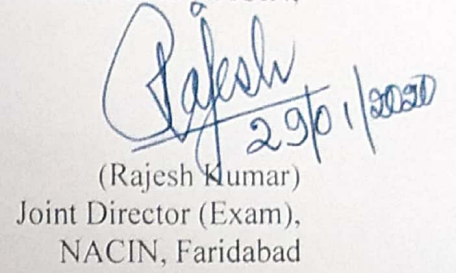 Rajesh
29/01/2020
(Rajesh Kumar)
Joint Director (Exam),
NACIN, Faridabad